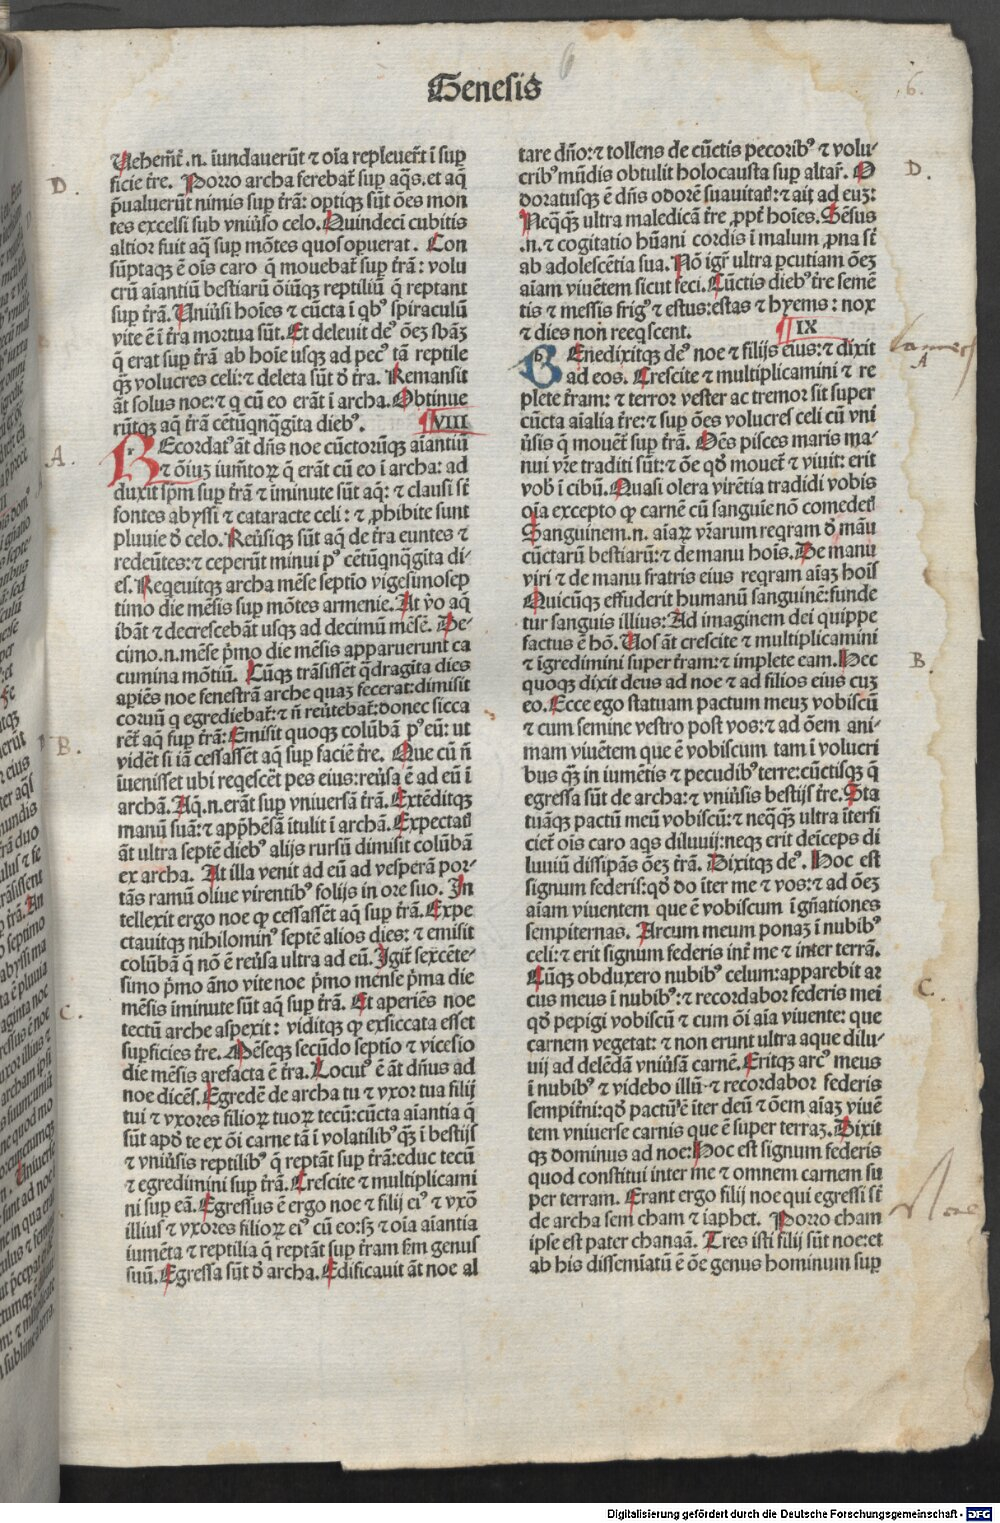 Genesis
6
6.
Uehemt̄.n. īundauerūt ⁊ oīa repleuert̄ ī sup
ficie tr̄e. Porro archa ferebat̄ sup aq̄s.et aq̄
p̄ualuerūt nimis sup tr̄ā: optiqꝫ sūt ōes mon
tes excelsi sub vniu̓so celo. Quindeci cubitis
altior fuit aq̄ sup mōtes quos opuerat. Con
sūptaqꝫ ē oīs caro q̄ mouebat̄ sup tr̄ā: volu
crū aīantiū bestiarū ōiūqꝫ reptiliū q̄ reptant
sup tr̄ā. Uniu̓si hoīes ⁊ cūcta ī qbꝰ spiraculū
vite ē ī tr̄a mortua sūt. Et deleuit deꝰ ōeꝫ sbāꝫ
q̄ erat sup tr̄ā ab hoīe usqꝫ ad pecꝰ tā reptile
qꝫ̄ volucres celi: ⁊ deleta sūt ꝺ̓ tr̄a. Remansit
āt solus noe: ⁊ q cū eo erāt ī archa. Obtinue
rūtqꝫ aq̄ tr̄ā cētūqnqgīta diebꝰ.
VIII
REcordatꝰ āt dn̄s noe cūctorūqꝫ aīantiū
⁊ ōiuꝫ iumt̄oꝝ q̄ erāt cū eo ī archa: ad
duxit spm̄ sup tr̄ā ⁊ īminute sūt aq̄: ⁊ clausi st̄
fontes abyssi ⁊ cataracte celi: ⁊ ꝓhibite sunt
pluuie ꝺ̓ celo. Reu̓sꝫqꝫ sūt aq̄ de tr̄a euntes ⁊
redeūtes: ⁊ ceperūt minui pꝰ cētūqnqgīta di-
es. Reqeuitqꝫ archa mēse septīo vigesimosep
timo die mēsis sup mōtes armenie. At v̓o aq̄
ibāt ⁊ decrescebāt usqꝫ ad decimū mēsē. De-
cimo.n. mēse pͥmo die mēsis apparuerunt ca
cumina mōtiū. Cūqꝫ trāsissēt q̄dragita dies
apiēs noe fenestrā arche quaꝫ fecerat: dimisit
coruū q egrediebat̄: ⁊ n̄ reu̓tebat̄: donec sicca
rēt̄ aq̄ sup tr̄ā: Emisit quoqꝫ colūbā pꝰ eū: ut
vidēt̄ si iā cessassēt aq̄ sup faciē tr̄e. Que cū n̄
īuenisset ubi reqescēt pes eius: reu̓sa ē ad eū ī
archā. Aq̄.n. erāt sup vniuersā tr̄ā. Extēditqꝫ
manū suā: ⁊ app̄hēsā ītulit ī archā. Expectatꝭ
āt ultra septē diebꝰ alijs rursū dimisit colūbā
ex archa. At illa venit ad eū ad vesperā por-
tās ramū oliue virentibꝰ folijs in ore suo. In
tellexit ergo noe ꝙ cessassēt aq̄ sup tr̄ā. Expe
ctauitqꝫ nihilominꝰ septē alios dies: ⁊ emisit
colūbā q̄ nō ē reu̓sa ultra ad eū. Igit̄ sexcēte-
simo pͥmo āno vite noe pͥmo mense pͥma die
mēsis īminute sūt aq̄ sup tr̄ā. Et aperiēs noe
tectū arche aspexit: viditqꝫ ꝙ exsiccata esset
supficies tr̄e. Mēseqꝫ secūdo septīo ⁊ vicesīo
die mēsis arefacta ē tr̄a. Locutꝰ ē āt dn̄us ad
noe dicēs. Egredē de archa tu ⁊ vxor tua filij
tui ⁊ vxores filioꝝ tuoꝝ tecū: cūcta aīantia q̄
sūt apꝺ̓ te ex ōi carne tā ī volatilibꝰ qꝫ̄ ī bestijs
⁊ vniu̓sis reptilibꝰ q̄ reptāt sup tr̄ā: educ tecū
⁊ egredimini sup tr̄ā. Crescite ⁊ multiplicami
ni sup eā. Egressus ē ergo noe ⁊ filij eiꝰ ⁊ vxō
illius ⁊ vxores filioꝝ eiꝰ cū eo: sꝫ ⁊ oīa aīantia
iumēta ⁊ reptilia q̄ reptāt sup tr̄am sm̄ genus
suū. Egressa sūt ꝺ̓ archa. Edificauit āt noe al
tare dn̄o: ⁊ tollens de cūctis pecoribꝰ ⁊ volu-
cribꝰ mūdis obtulit holocausta sup altar̄. O
doratusqꝫ ē dn̄s odorē suauitatꝭ: ⁊ ait ad euꝫ:
Neqꝫꝫ̄ ultra maledicā tr̄e ꝓpt̄ hoīes. Sēsus
.n. ⁊ cogitatio hūani cordis ī malum ꝓna st̄
ab adolescētia sua. Nō igr̄ ultra pcutiam ōeꝫ
aīam viuētem sicut feci. Cūctis diebꝰ tr̄e semē
tis ⁊ messis frigꝰ ⁊ estus: estas ⁊ hyems: nox
⁊ dies non reeqscent.
IX
BEnedixitqꝫ deꝰ noe ⁊ filijs eius: ⁊ dixit
ad eos. Crescite ⁊ multiplicamini ⁊ re
plete tr̄am: ⁊ terror vester ac tremor sit super
cūcta aīalia tr̄e: ⁊ sup ōes volucres celi cū vni
u̓sis q̄ mouēt̄ sup tr̄ā. Oēs pisces maris ma-
nui vr̄e traditi sūt: ⁊ ōe qꝺ̓ mouet̄ ⁊ viuit: erit
vob̄ ī cibū. Quasi olera virētia tradidi vobis
oīa excepto ꝙ carnē cū sanguīe nō comedetꝭ
Sanguinem.n. aīaꝝ vr̄arum reqram ꝺ̓ māu
cūctarū bestiarū: ⁊ de manu hoīs. De manu
viri ⁊ de manu fratris eius reqram aīaꝫ hoīs
Quicūqꝫ effuderit humanū sanguinē: funde
tur sanguis illius: Ad imaginem dei quippe
factus ē hō. Uos āt crescite ⁊ multiplicamini
⁊ īgredimini super tr̄am: ⁊ implete eam. Hec
quoqꝫ dixit deus ad noe ⁊ ad filios eius cuꝫ
eo. Ecce ego statuam pactum meuꝫ vobiscū
⁊ cum semine vestro post vos: ⁊ ad ōem ani-
mam viuētem que ē vobiscum tam ī volucri
bus qꝫ̄ in iumētis ⁊ pecudibꝰ terre: cūctisqꝫ q̄
egressa sūt de archa: ⁊ vniu̓sis bestijs tr̄e. Sta
tuāqꝫ pactū meū vobiscū: ⁊ neqꝫꝫ̄ ultra īterfi
ciet̄ oīs caro aqs diluuij: neqꝫ erit deīceps di
luuiū dissipās ōeꝫ tr̄ā. Dixitqꝫ deꝰ. Hoc est
signum federis: qꝺ̓ do īter me ⁊ vos: ⁊ ad ōeꝫ
aīam viuentem que ē vobiscum ī gn̄ationes
sempiternas. Arcum meum ponaꝫ ī nubibꝰ
celi: ⁊ erit signum federis int̄ me ⁊ inter terrā.
Cūqꝫ obduxero nubibꝰ celum: apparebit ar
cus meus ī nubibꝰ: ⁊ recordabor federis mei
qꝺ̓ pepigi vobiscū ⁊ cum ōi aīa viuente: que
carnem vegetat: ⁊ non erunt ultra aque dilu-
uij ad delēdā vniu̓sā carnē. Eritqꝫ arcꝰ meus
ī nubibꝰ ⁊ videbo illū ⁊ recordabor federis
sempit̄ni: qꝺ̓ pactū ē īter deū ⁊ ōem aīaꝫ viuē
tem vniuerse carnis que ē super terraꝫ. Dixit
qꝫ dominus ad noe: Hoc est signum federis
quod constitui inter me ⁊ omnem carnem su
per terram. Erant ergo filij noe qui egressi st̄
de archa sem cham ⁊ iaphet. Porro cham
ipse est pater chanaā. Tres isti filij sūt noe: et
ab his disseminatū ē ōe genus hominum sup
D.
A.
B.
C.
D.
A
B.
C.
Noe
Digitalisierung gefördert durch die Deutsche Forschungsgemeinschaft - DFG